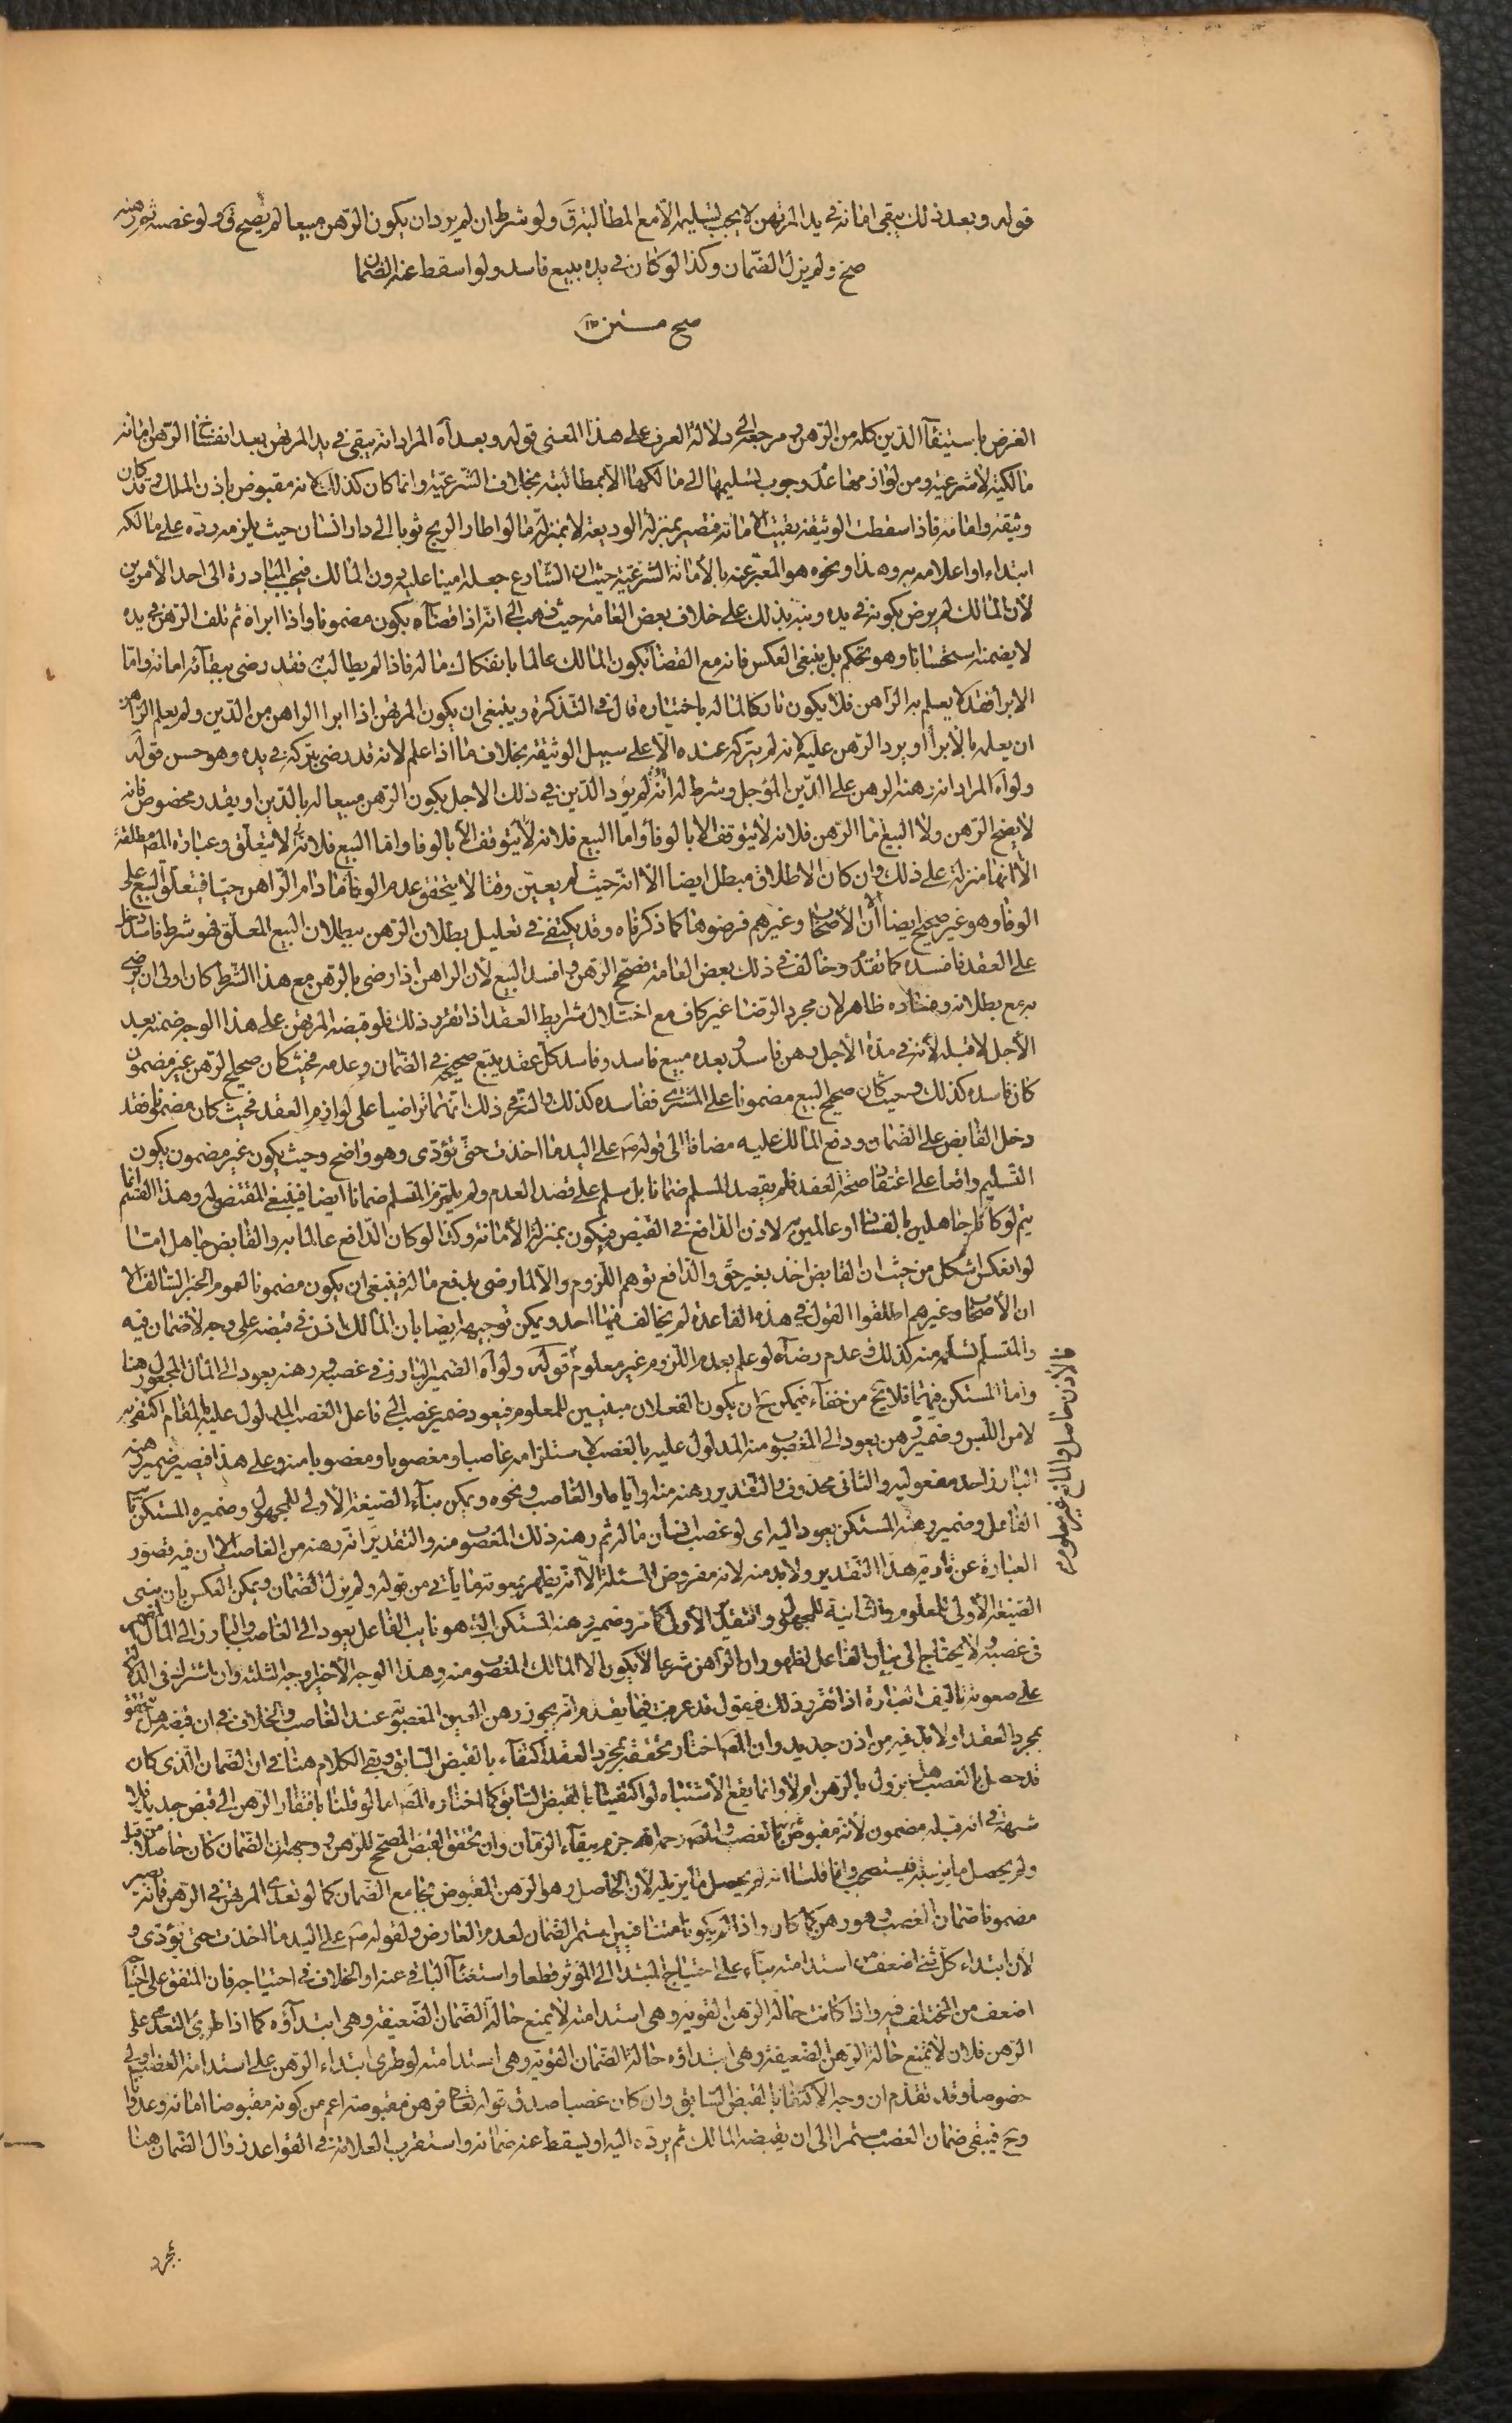 قوله وبعد ذلك يبقى امانة في يد المرتهن لا يجب تسليمه الا مع المطالبة ق ولو شرط ان لم يرد ان يكون الرهن مبيعا لم يصح ق ولو غصبه ثم رهنه
صح ولم يزل الضمان وكذا لو كان في يده ببيع فاسد ولو اسقط عنه الضمان
صح متن
الغرض باستيفآ الدين كله من الرهن و مرجعه الى دلالة العرف على هذا المعنى قوله وبعد آه المراد انه يبقى في يد المرتهن بعد انفساخ الرهن امانة
مالكية لا شرعية ومن لوازمها عدم وجوب تسليمها الى مالكها الا بمطالبته بخلاف الشرعية وانما كان كذلك لانه مقبوض باذن المالك وقد كان
وثيقة وامانة فاذا سقطت الوثيقة بقيت الامانة فتصير بمنزلة الوديعة لا بمنزلة ما لو اطار الريح ثوبا الى دار انسان حيث يلزمه رده على مالكه
ابتداء او اعلامه به وهذا ونحوه هو المعبر عنه بالأمانة الشرعية حيث ان الشارع جعله امينا عليه دون المالك فيجب المبادرة الى احد الأمرين
لأن المالك لم يرض بكونه في يده ونبه بذلك على خلاف بعض العامة حيث ذهب الى انه اذا قضاه يكون مضمونا واذا ابراه ثم تلف الرهن في يده
لا يضمنه استحسانا وهو تحكم بل ينبغي العكس فانه مع القضآ يكون المالك عالما بانفكاك ماله فاذا لم يطالب به فقد رضي ببقآئه امانة واما
الابرا فقد لا يعلم به الراهن فلا يكون تاركا لماله باختياره قال في التذكرة وينبغي ان يكون المرتهن اذا ابرا الراهن من الدين ولم يعلم الراهن
ان يعلمه بالابرآ او يرد الرهن عليه لانه لم يتركه عنده الا على سبيل الوثيقة بخلاف ما اذا علم لانه قد رضى بتركه في يده وهو حسن قوله
ولو آه المراد انه رهنه الرهن على الدين المؤجل وشرط له انه ان لم يؤد الدين في ذلك الاجل يكون الرهن مبيعا له بالدين او بقدر مخصوص فانه
لا يصح الرهن ولا البيع اما الرهن فلانه لا يتوقف الا بالوفآ واما البيع فلانه لا يتوقف الا بالوفا واما البيع فلانه لا يتعلق وعبارة المص مطلقة
الا انها منزلة على ذلك وان كان الاطلاق مبطل ايضا الا انه حيث لم يعين وقتا لا يتحقق عدم الوفا ما دام الراهن حيا فيتعلق البيع على
الوفا وهو غير صحيح ايضا الا ان الأصحاب وغيرهم فرضوها كما ذكرناه وقد يكتفى في تعليل بطلان الرهن ببطلان البيع المعلق فهو شرط فاسد دخل
على العقد فافسده كما تقدم وخالف في ذلك بعض العامة فصحح الرهن وافسد البيع لأن الراهن اذا رضى بالرهن مع هذا الشرط كان اولى ان يرضى
به مع بطلانه وفساده ظاهر لان مجرد الرضا غير كاف مع اختلال شرايط العقد اذا تقرر ذلك فلو قبضه المرتهن على هذا الوجه ضمنه بعد
الأجل لا قبله لأنه في مدة الأجل رهن فاسد و بعده مبيع فاسد وفاسد كل عقد يتبع صحيحه في الضمان وعدمه فحيث كان صحيح الرهن غير مضمون
كان فاسده كذلك وحيث كان صحيح البيع مضمونا على المشترى ففاسده كذلك والسر في ذلك انهما تراضيا على لوازم العقد فحيث كان مضمونا فقد
دخل القابض على الضمان ودفع المالك عليه مضافا الى قوله ص على اليد ما اخذت حتى تؤدى وهو واضح وحيث يكون غير مضمون يكون
التسليم واقعا على اعتقاد صحة العقد فلم يقصد المسلم ضمانا بل سلم على قصد العدم ولم يلتزم المتسلم ضمانا ايضا فينبغى المقتضى له وهذا القسم انما
يتم لو كانا جاهلين بالفساد او عالمين به لاذن الدافع في القبض فيكون بمنزلة الأمانة وكذا لو كان الدافع عالما به والقابض جاهلا اما
لو انعكس اشكل من حيث ان القابض اخذ بغير حق والدافع توهم اللزوم والا لما رضى بدفع ماله فينبغى ان يكون مضمونا لعموم الخبر السالف الا
ان الأصحاب وغيرهم اطلقوا القول في هذه القاعدة لم يخالف فيها احد ويمكن توجيهه ايضا بان المالك اذن في قبضه على وجه لا ضمان فيه
والمتسلم تسلمه منه كذلك وعدم رضآه لو علم بعدم اللزوم غير معلوم قوله ولو آه الضمير البارز في غصبه ورهنه يعود الى المال المجعول رهنا
فالاذن حاصل والمانع غير معلوم
واما المستكن فيهما فلا يخ من خفآء فيمكن ح ان يكون الفعلان مبنيين للمعلوم فيعود ضمير غصب الى فاعل الغصب المدلول عليه بالمقام اكتفى به
لامن اللبس وضمير رهن يعود الى المغصوب منه المدلول عليه بالغصب لاستلزامه غاصبا ومغصوبا ومغصوبا منه وعلى هذا فيصير ضمير رهنه
البارز احد مفعوليه والثانى محذوف والتقدير رهنه منه او اياه او الغاصب ونحوه ويمكن بنآء الصيغة الأولى للمجهول وضميره المستكن نايب
الفاعل وضمير رهنه المستكن يعود اليه اى لو غصب انسان ماله ثم رهنه ذلك المغصوب منه والتقدير انه رهنه من الغاصب الا ان فيه قصور
العبارة عن تادية هذا التقدير ولا بد منه لانه مفروض المسئلة الا انه يظهر بمعونة ما يأتى من قوله ولم يزل الضمان ويمكن العكس بان يبنى
الصيغة الأولى للمعلوم والثانية للمجهول والتقدير الأولى كما مر وضمير رهنه المستكن الذى هو نايب الفاعل يعود الى الغاصب والبارز الى المال
في غصبه ولا يحتاج الى بيان الفاعل لظهور ان الراهن شرعا لا يكون الا المالك المغصوب منه وهذا الوجه الأخير اوجه الثلثة وان اشترك في الدلالة
على صعوبة تاليف العبارة اذا تقرر ذلك فنقول قد عرفت فيما تقدم انه يجوز رهن العين المغصوبة عند الغاصب والخلاف في ان قبضه هل يتحقق
بمجرد العقد او لا بد فيه من اذن جديد وان المص اختار تحققه بمجرد العقد اكتفآء بالقبض السابق وبقى الكلام هنا في ان الضمان الذى كان
قد حصل بالغصب هل يزول بالرهن ام لا وانما يقع الأشتباه لو اكتفينا بالقبض السابق كما اختاره المص اما لو قلنا بافتقار الرهن الى قبض جديد فلا
شبهة في انه قبله مضمون لأنه مقبوض بالغصب والمص رحمه الله جزم ببقآء الزمان وان تحقق القبض المصحح للرهن ووجهه ان الضمان كان حاصلا من قبل
ولم يحصل ما يزيله فيستصحب وانما قلنا انه لم يحصل ما يزيله لأن الحاصل وهو الرهن المقبوض يجامع الضمان كما لو تعدى المرتهن في الرهن فانه يصير
مضمونا ضمان الغصب وهو رهن كما كان واذا لم يكونا متنافيين استمر الضمان لعدم العارض ولقوله ص على اليد ما اخذت حتى تؤدى و
لأن ابتداء كل شئ اضعف من استدامته بنآء على احتياج المبتدا الى المؤثر قطعا واستغنآ الباقى عنه او الخلاف في احتياجه فان المتفق على احتياجه
اضعف من المختلف فيه واذا كانت حالة الرهن القوية وهى استدامته لا يمنع حالة الضمان الضعيفة وهى ابتدآؤه كما اذا طرئ التعدى على
الرهن فلان لا يمنع حالة الرهن الضعيفة وهى ابتداؤه حالة الضمان القوية وهى استدامته لو طرئ ابتداء الرهن على استدامة الغصب اولى
خصوصا وقد تقدم ان وجه الأكتفا بالقبض السابق وان كان غصبا صدق قوله تعالى فرهن مقبوضة اعم من كونه مقبوضا امانة وعدوانا
وح فيبقى ضمان الغصب مستمرا الى ان يقبضه المالك ثم يرده اليه او يسقط عنه ضمانه واستقرب العلامة في القواعد زوال الضمان هنا
بمجرد